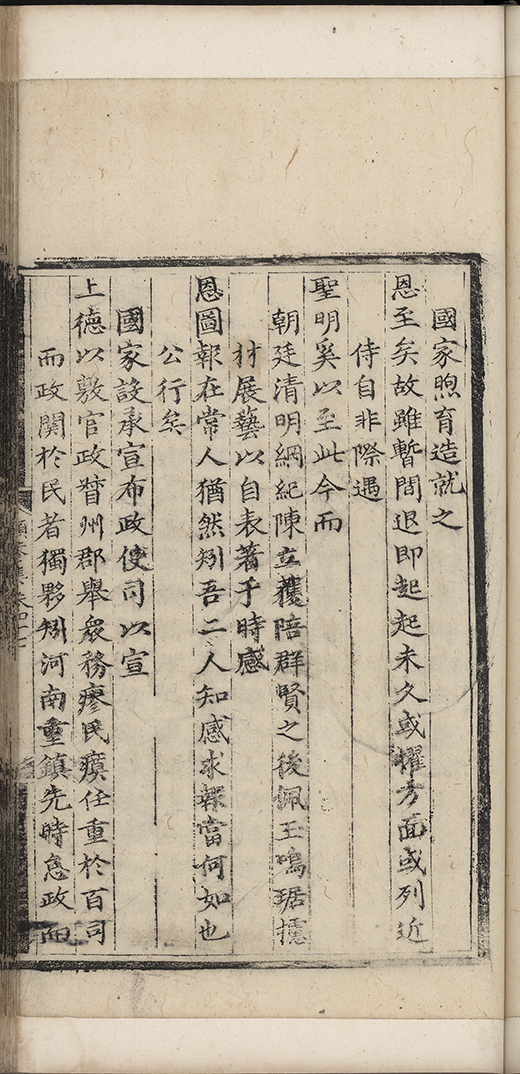 國家煦育造就之
恩至矣故雖暫閑退即起起未久或擢方面或列近
侍自非際遇
聖明奚以至此今而
朝廷清明綱紀陳立獲陪群賢之後佩玉鳴琚攄
材展藝以自表著于時感
恩圖報在常人猶然矧吾二人知感求報當何如也
公行矣
國家設承宣布政使司以宣
上德以敷官政督州郡舉衆務瘳民瘼任重於百司
而政関於民者獨夥矧河南重鎮先時怠政而